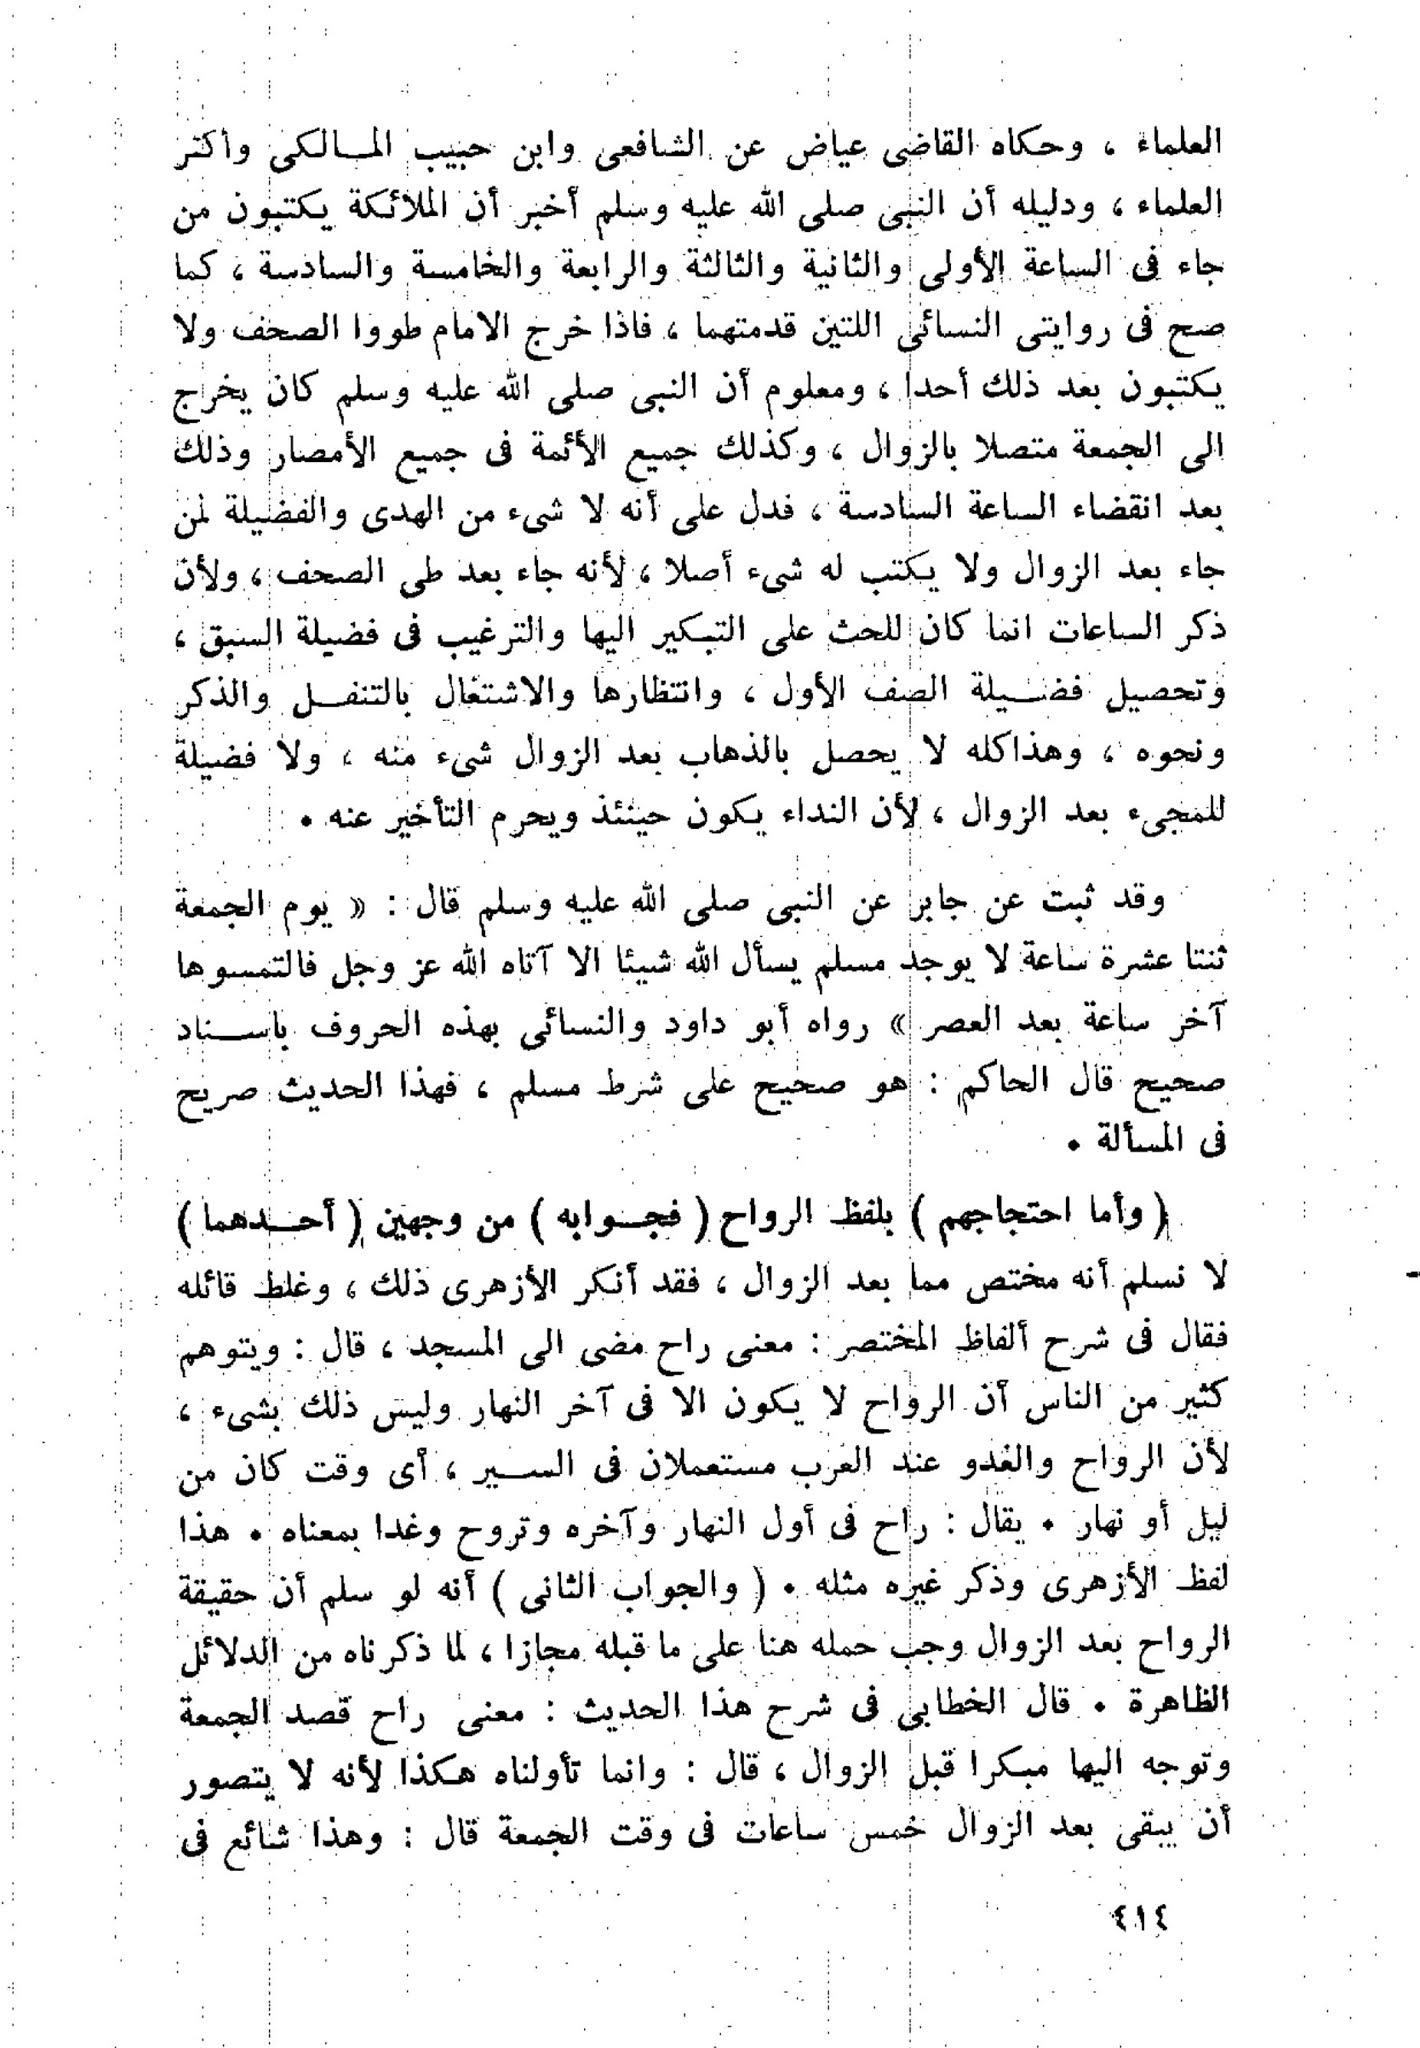 العلماء ، وحكاه القاضى عياض عن الشافعى وابن حبيب المــالكى وأكثر
العلماء ، ودليله أن النبى صلى الله عليه وسلم أخبر أن الملائكة يكتبون من
جاء فى الساعة الأولى والثانية والثالثة والرابعة والخامسة والسادسة ، كما
صح فى روايتى النسائى اللتين قدمتهما ، فاذا خرج الامام طووا الصحف ولا
يكتبون بعد ذلك أحدا ، ومعلوم أن النبى صلى الله عليه وسلم كان يخرج
الى الجمعة متصلا بالزوال ، وكذلك جميع الأئمة فى جميع الأمصار وذلك
بعد انقضاء الساعة السادسة ، فدل على أنه لا شىء من الهدى والفضيلة لمن
جاء بعد الزوال ولا يكتب له شىء أصلا ، لأنه جاء بعد طى الصحف ، ولأن
ذكر الساعات انما كان للحث على التبكير اليها والترغيب فى فضيلة السبق ،
وتحصيل فضــيلة الصف الأول ، وانتظارها والاشتغال بالتنفــل والذكر
ونحوه ، وهذا كله لا يحصل بالذهاب بعد الزوال شىء منه ، ولا فضيلة
للمجىء بعد الزوال ، لأن النداء يكون حينئذ ويحرم التأخير عنه •
وقد ثبت عن جابر عن النبى صلى الله عليه وسلم قال : « يوم الجمعة
ثنتا عشرة ساعة لا يوجد مسلم يسأل الله شيئا الا آتاه الله عز وجل فالتمسوها
آخر ساعة بعد العصر » رواه أبو داود والنسائى بهذه الحروف باســناد
صحيح قال الحاكم : هو صحيح على شرط مسلم ، فهذا الحديث صريح
فى المسألة •
( وأما احتجاجهم ) بلفظ الرواح ( فجــوابه ) من وجهين ( أحــدهما )
لا نسلم أنه مختص مما بعد الزوال ، فقد أنكر الأزهرى ذلك ، وغلط قائله
فقال فى شرح ألفاظ المختصر : معنى راح مضى الى المسجد ، قال : ويتوهم
كثير من الناس أن الرواح لا يكون الا فى آخر النهار وليس ذلك بشىء ،
لأن الرواح والغدو عند العرب مستعملان فى الســير ، أى وقت كان من
ليل أو نهار • يقال : راح فى أول النهار وآخره وتروح وغدا بمعناه • هذا
لفظ الأزهرى وذكر غيره مثله • ( والجواب الثانى ) أنه لو سلم أن حقيقة
الرواح بعد الزوال وجب حمله هنا على ما قبله مجازا ، لما ذكرناه من الدلائل
الظاهرة • قال الخطابى فى شرح هذا الحديث : معنى راح قصد الجمعة
وتوجه اليها مبكرا قبل الزوال ، قال : وانما تأولناه هكذا لأنه لا يتصور
أن يبقى بعد الزوال خمس ساعات فى وقت الجمعة قال : وهذا شائع فى
٤١٤